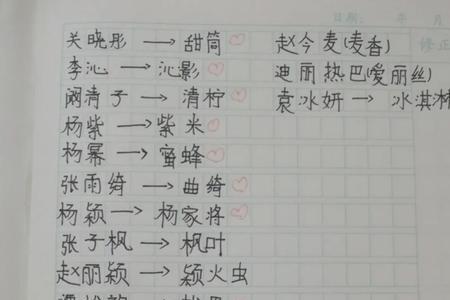 日期: 年 月
关晓彤 → 甜筒♡ 赵今麦(麦香)
修正
李沁 → 沁影♡ 迪丽热巴(爱丽丝)
阚清子 → 清柠♡ 袁冰妍 → 冰淇淋
杨紫 → 紫米♡
杨幂 → 蜜蜂♡
张雨绮 → 曲绮♡
杨颖 → 杨家将♡
张子枫 → 枫叶
赵丽颖 → 颖火虫